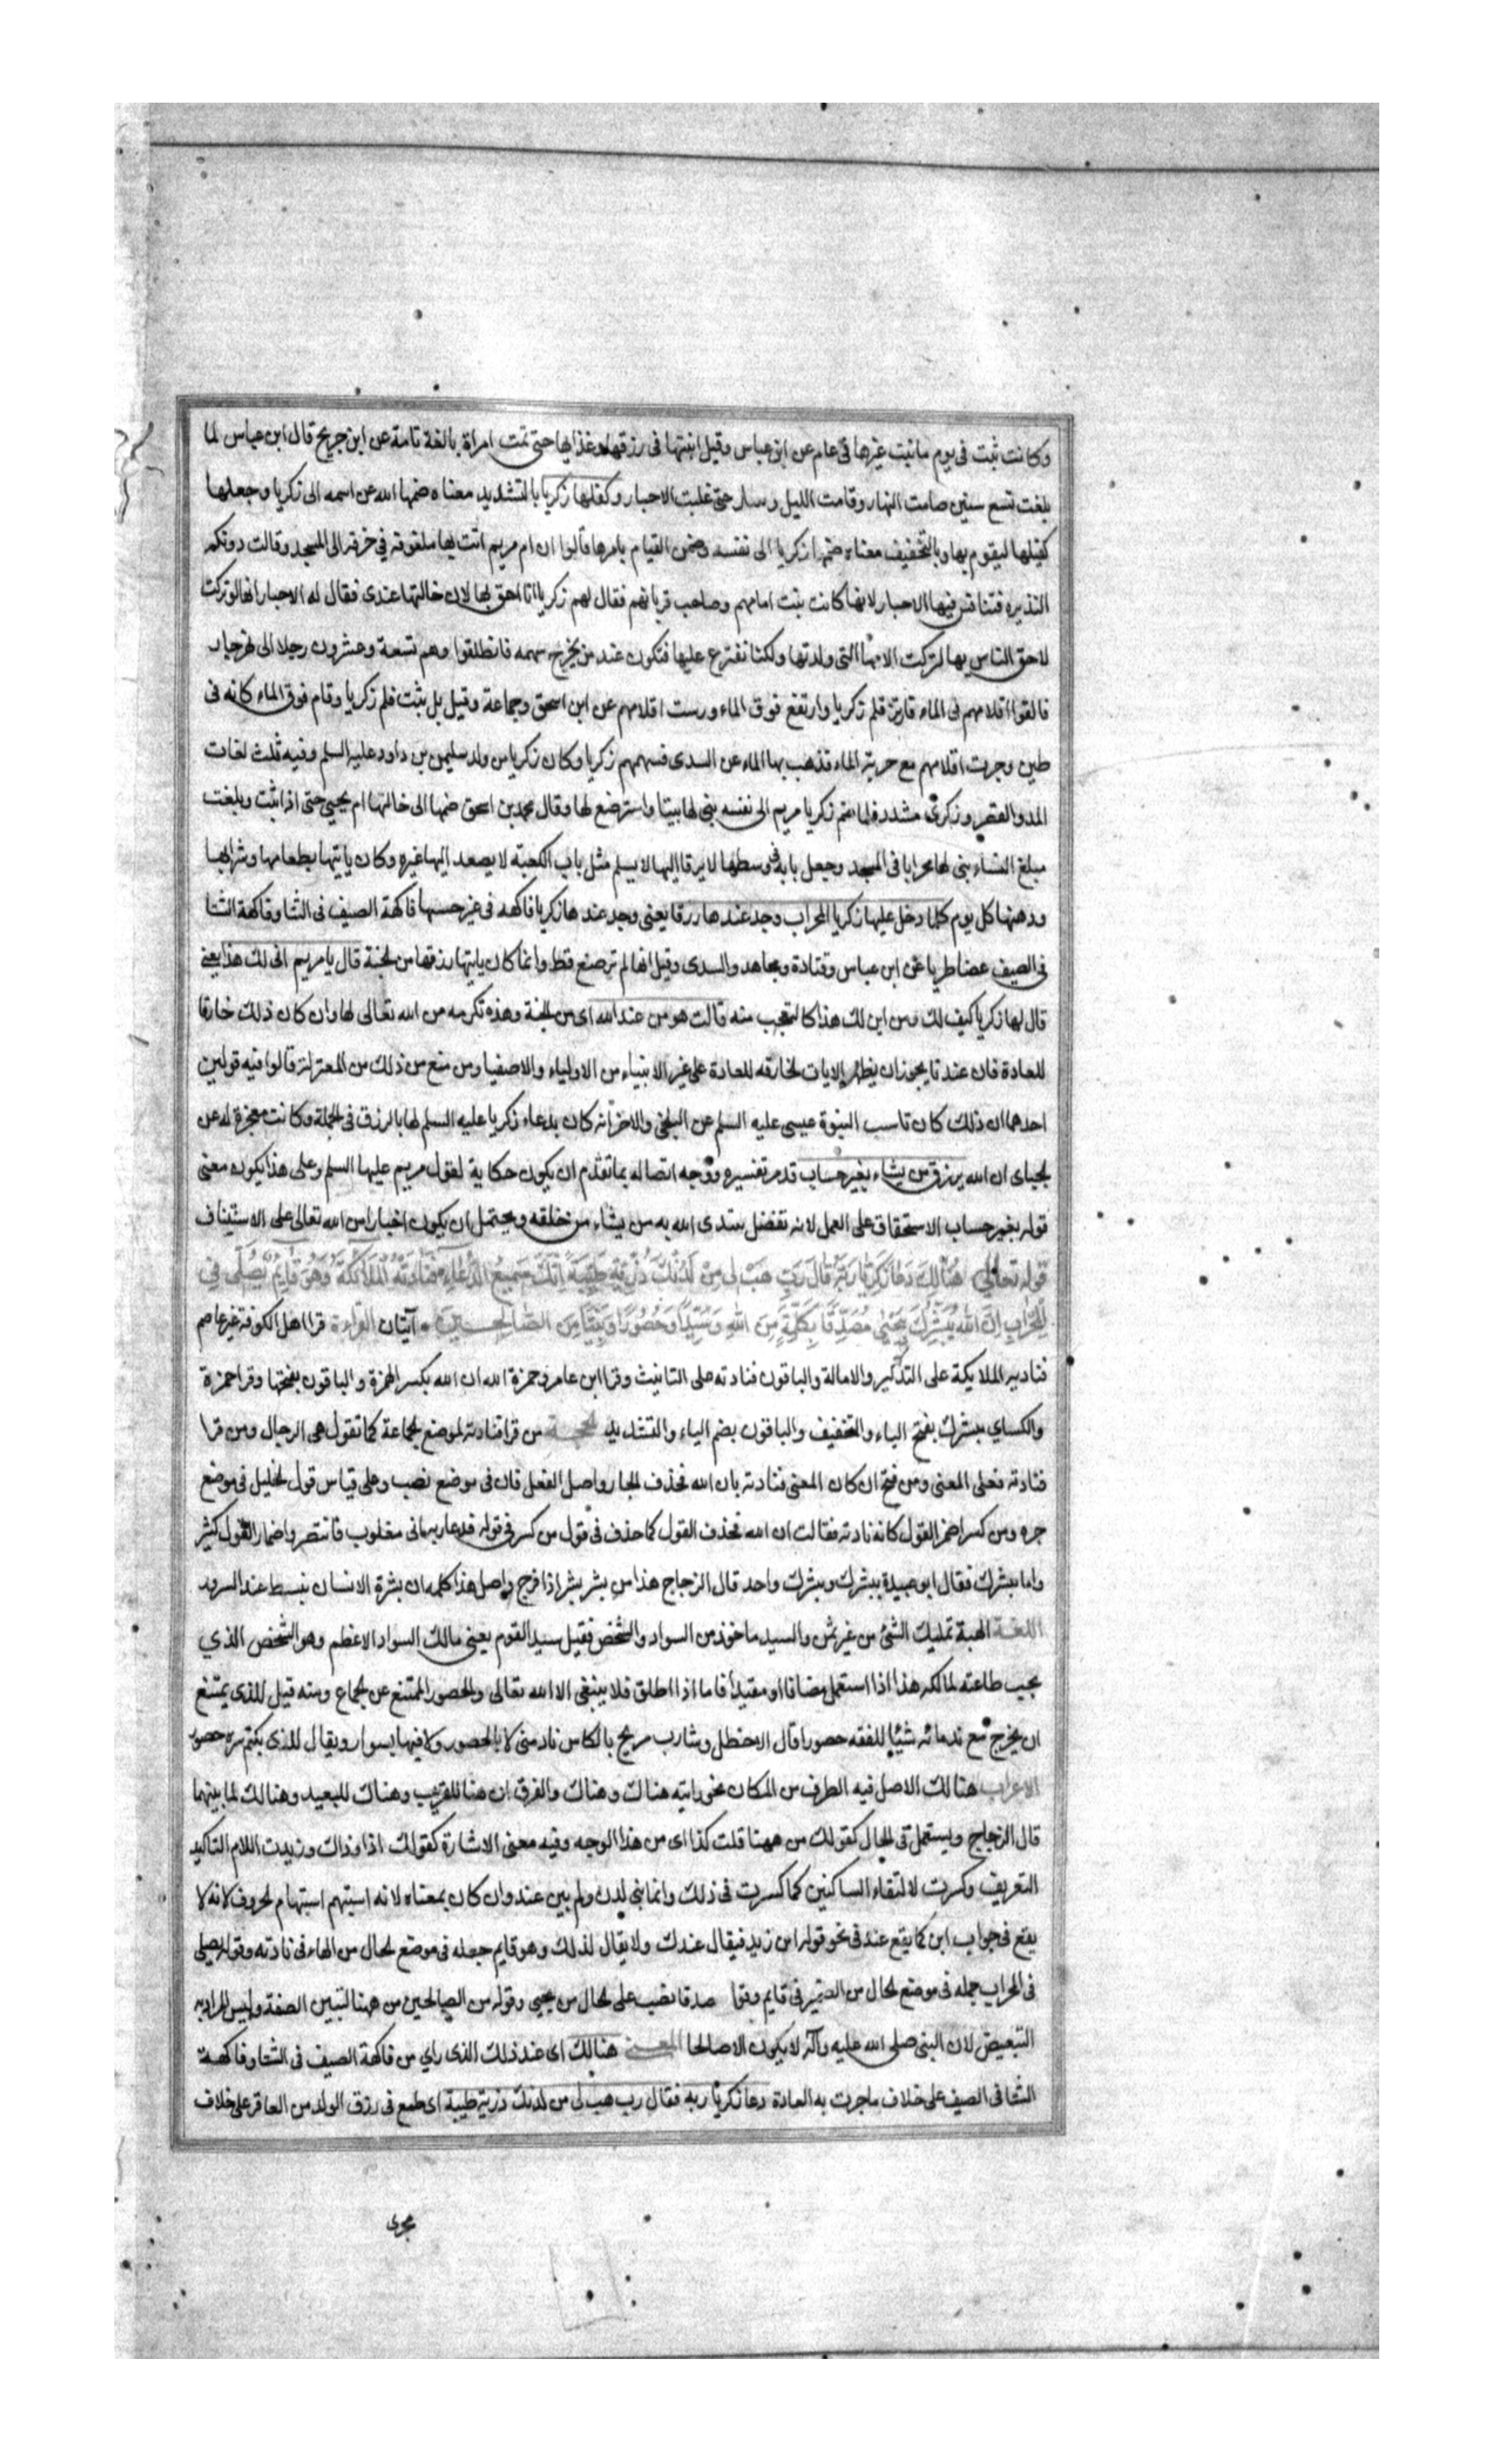 وكانت تثبت فى يوم ما نبت غيرها فى عام عن ابن عباس وقيل انبتها فى رزقها وغذايها حتى تمت امراة بالغة تامة عن ابن جريج قال ابن عباس لما
بلغت تسع سنين صامت النهار وقامت الليل وسار حتى غلبت الاحبار وكفلها زكريا بالتشديد معناه ضمها الله عن اسمه الى زكريا وجعلها
كفيلها ليقوم بها وبالتخفيف معناه ضمها زكريا الى نفسه وضمن القيام بامرها قالوا ان ام مريم اتت بها ملفوفة في خرقة الى المسجد وقالت دونكم
النذيره فتنافس فيها الاحبار لانها كانت بنت امامهم وصاحب قربانهم فقال لهم زكريا انا احق بها لان خالتها عندى فقال له الاحبار انها لو تركت
لاحق الناس بها لتركت لامها التى ولدتها ولكنا نقترع عليها فتكون عند من يخرج سهمه فانطلقوا وهم تسعة وعشرون رجلا الى نهر جار
فالقوا اقلامهم فى الماء فارتز قلم زكريا وارتفع فوق الماء ورست اقلامهم عن ابن اسحق وجماعة وقيل بل ثبت قلم زكريا وقام فوق الماء كانه فى
طين وجرت اقلامهم مع جرية الماء فذهب بها الماء عن السدى فسهمهم زكريا وكان زكريا من ولد سليمن بن داود عليه السلم وفيه ثلث لغات
المد والقصر وزكرى مشددة فلما ضم زكريا مريم الى نفسه بنى لها بيتا واسترضع لها وقال محمد بن اسحق ضمها الى خالتها ام يحيى حتى اذا شبت وبلغت
مبلغ النساء بنى لها محرابا فى المسجد وجعل بابه فى وسطها لا يرقا اليها الا بسلم مثل باب الكعبة لا يصعد اليها غيره وكان ياتيها بطعامها وشرابها
ودهنها كل يوم كلما دخل عليها زكريا المحراب وجد عندها رزقا يعنى وجد عندها زكريا فاكهه فى غير حسها فاكهة الصيف فى الشتا وفاكهة الشتا
فى الصيف غضا طريا عن ابن عباس وقتادة ومجاهد والسدى وقيل انها لم ترضع قط وانما كان ياتيها رزقها من الجنة قال يا مريم انى لك هذا يعنى
قال لها زكريا كيف لك ومن اين لك هذا كالمتعجب منه قالت هو من عند الله اى من الجنة وهذه تكرمه من الله تعالى لها وان كان ذلك خارقا
للعادة فان عندنا يجوز ان يظهر الايات الخارقه للعادة على غير الانبياء من الاولياء والاصفيا ومن منع من ذلك من المعتزلة قالوا فيه قولين
احدهما ان ذلك كان تاسب النبوة عيسى عليه السلم عن البلخى والاخر انه كان بدعاء زكريا عليه السلم لها بالرزق فى الجملة وكانت معجزة له عن
الجباى ان الله يرزق من يشاء بغير حساب قد مر تفسيره ووجه اتصاله بما تقدم ان يكون حكاية لقول مريم عليها السلم وعلى هذا يكون معنى
قوله بغير حساب الاستحقاق على العمل لانه تفضل يبتدى الله به من يشاء من خلقه ويحتمل ان يكون اخبارا من الله تعالى على الاستيناف
قوله تعالى هُنَالِكَ دَعَا زَكَرِيَّا رَبَّهُ قَالَ رَبِّ هَبْ لِى مِنْ لَدُنْكَ ذُرِّيَّةً طَيِّبَةً اِنَّكَ سَمِيعُ الدُّعَاءِ فَنَادَتْهُ الْمَلَائِكَةُ وَهُوَ قَائِمٌ يُصَلِّى فِى
الْمِحْرَابِ اِنَّ اللهَ يُبَشِّرُكَ بِيَحْيٰى مُصَدِّقًا بِكَلِمَةٍ مِنَ اللهِ وَسَيِّدًا وَحَصُورًا وَنَبِيًّا مِنَ الصَّالِحِينَ آيتان القراءة قرا اهل الكوفة غير عاصم
فناديه الملايكة على التذكير والامالة والباقون فنادته على التانيث وقرا ابن عامر وحمزة الله ان الله بكسر الهمزة والباقون بفتحها وقرا حمزة
والكساي يبشرك بفتح الياء والتخفيف والباقون بضم الياء والتشديد الحجة من قرا فنادته لموضع الجماعة كما تقول هى الرجال ومن قرا
فنادته فعلى المعنى ومن فتح ان كان المعنى فنادته بان الله فحذف الجار واصل الفعل فان فى موضع نصب وعلى قياس قول الخليل فى موضع
جره ومن كسر اضمر القول كانه نادته فقالت ان الله فحذف القول كما حذف فى قول من كسر فى قوله فدعا ربه انى مغلوب فانتصر واضمار القول كثير
واما يبشرك فقال ابو عبيدة يبشرك ويبشرك واحد قال الزجاج هذا من بشر يبشر اذا فرح واصل هذا كله ان بشرة الانسان تنبسط عند السرور
اللغة الهبة تمليك الشئ من غير ثمن والسيد ماخوذ من السواد والشخص فقيل سيد القوم يعنى مالك السواد الاعظم وهو الشخص الذي
يجب طاعته لمالكه هذا اذا استعمل مضافا او مقيدا فاما اذا اطلق فلا ينبغى الا الله تعالى والحصور الممتنع عن الجماع ومنه قيل للذى يمتنع
ان يخرج مع ندمائه شيئا للنفقه حصورا قال الاخطل وشارب مربح بالكاس نادمنى لا بالحصور ولا فيها بسوار ويقال للذى يكتم سره حصور
الاعراب هنالك الاصل فيه الظرف من المكان نحو رايته هناك وهناك والفرق ان هنا للقريب وهناك للبعيد وهنالك لما بينهما
قال الزجاج ويستعمل فى الحال كقولك من ههنا قلت كذا اى من هذا الوجه وفيه معنى الاشارة كقولك اذا وذاك وزيدت اللام التاكيد
التعريف وكسرت لالتقاء الساكنين كما كسرت فى ذلك وانما بنى لدن ولم يبن عند وان كان بمعناه لانه استبهم استبهام الحروف لانه لا
يقع فى جواب اين كما يقع عند فى نحو قوله اين زيد فيقال عندك ولا يقال لذلك وهو قايم جمله فى موضع الحال من الهاء فى نادته وقوله يصلى
فى المحراب جمله فى موضع الحال من الضمير فى قايم صدقا نصب على الحال من يحيى وقوله من الصالحين من ههنا لتبيين الصفة وليس المراد به
التبعيض لان النبى صلى الله عليه وآله لا يكون الا صالحا المعنى هنالك اى عند ذلك الذى راي من فاكهة الصيف فى الشتا وفاكهة
الشتا فى الصيف على خلاف ما جرت به العادة دعا زكريا ربه فقال رب هب لى من لدنك ذرية طيبة اى طمع فى رزق الولد من العاقر على خلاف
مجرى